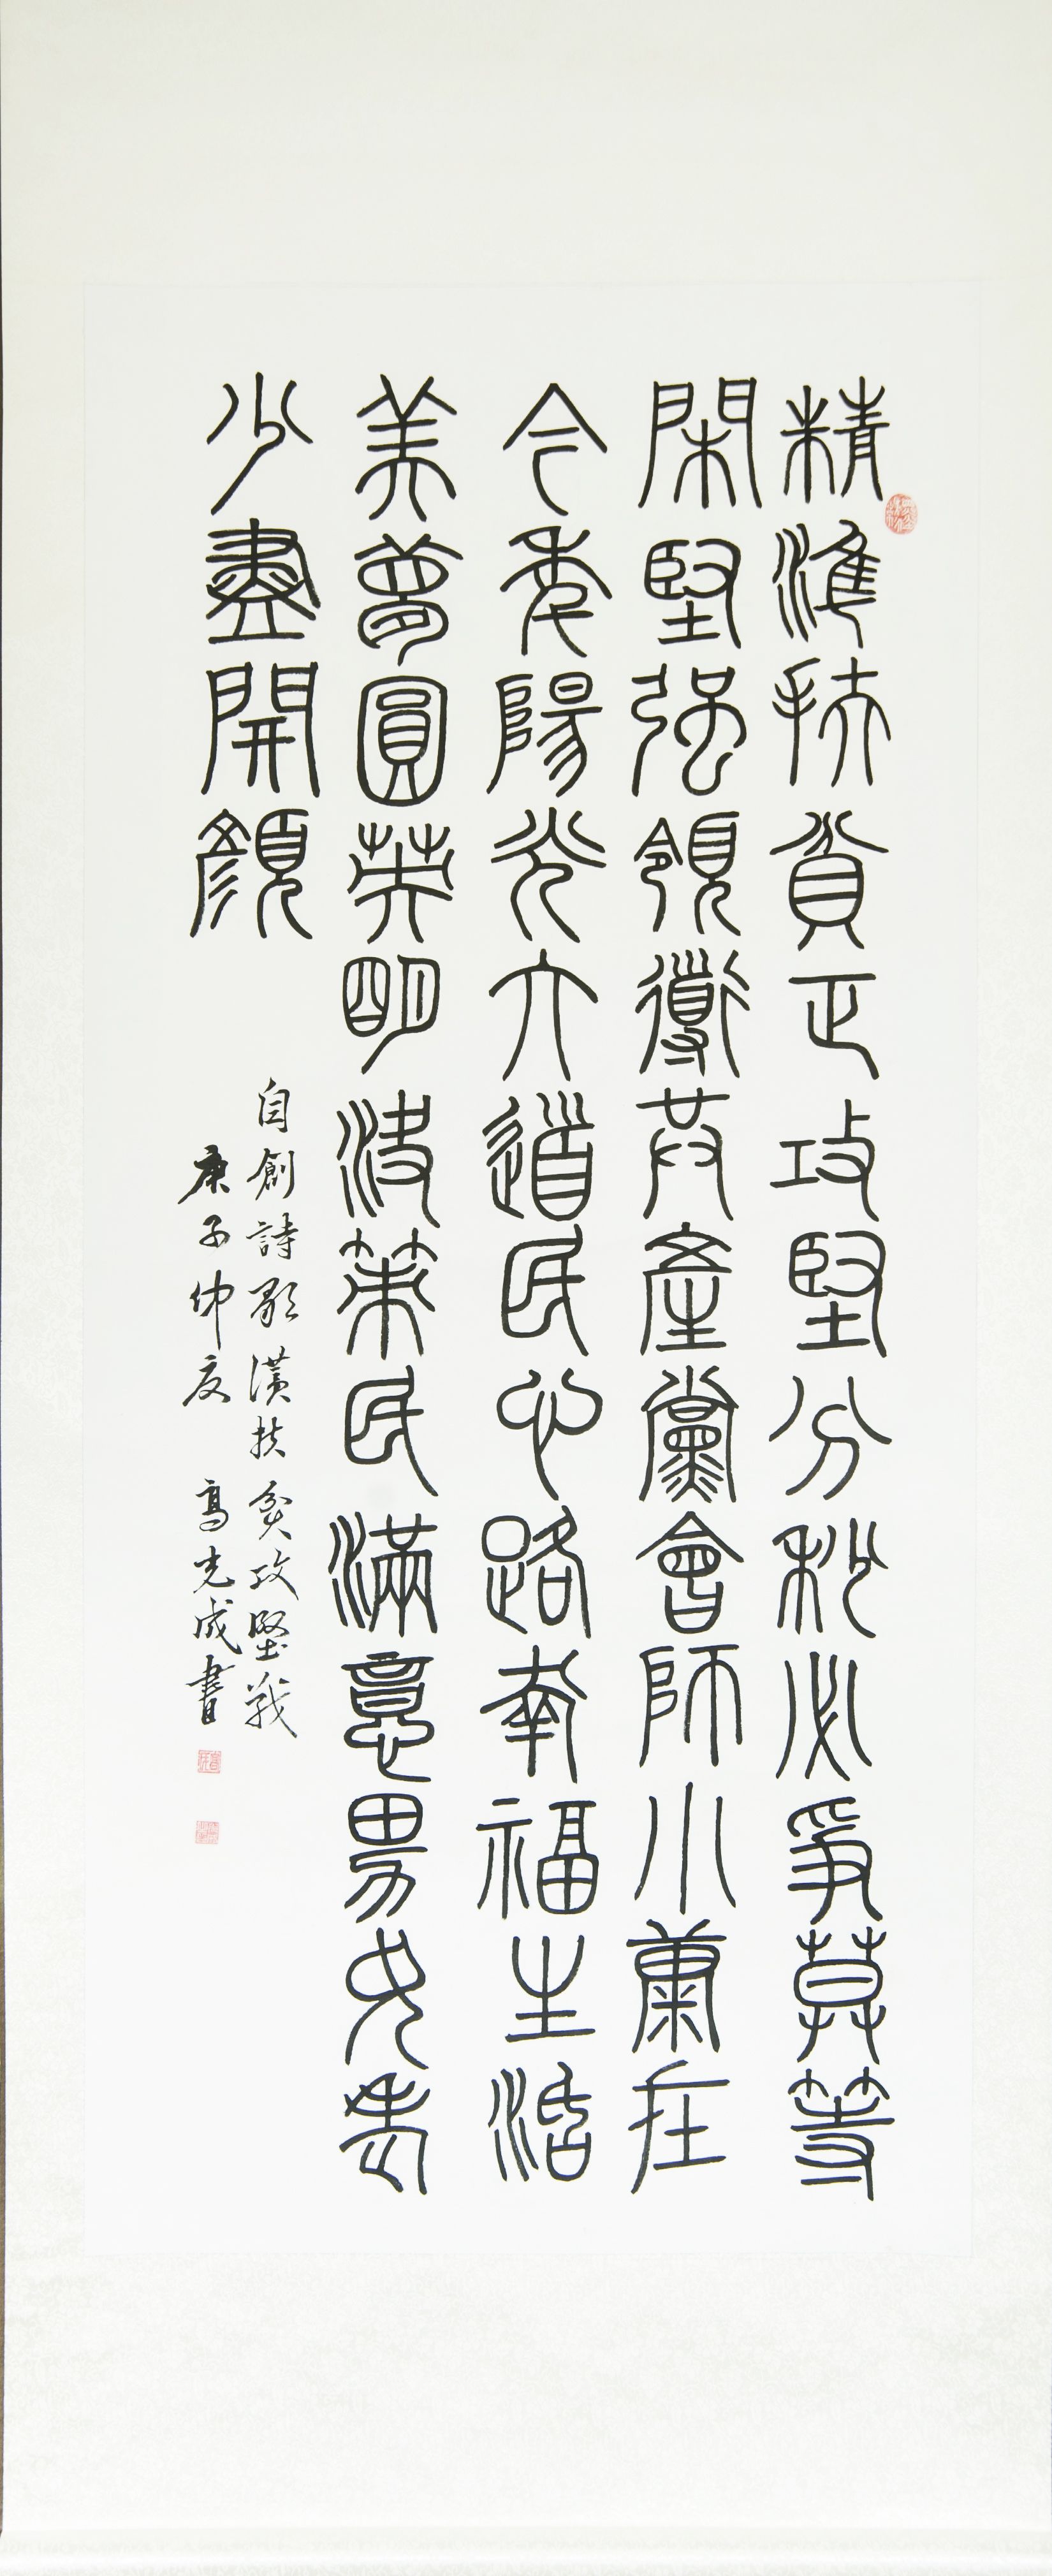 精準扶貧正攻堅分秒必爭莫等
閑堅强領導共產黨會師小康在
今年陽光大道民心路幸福生活
美夢圓英明決策民滿意男女老
少盡開顏
自創詩歌扶貧攻堅戰
庚子仲夏 高光成書